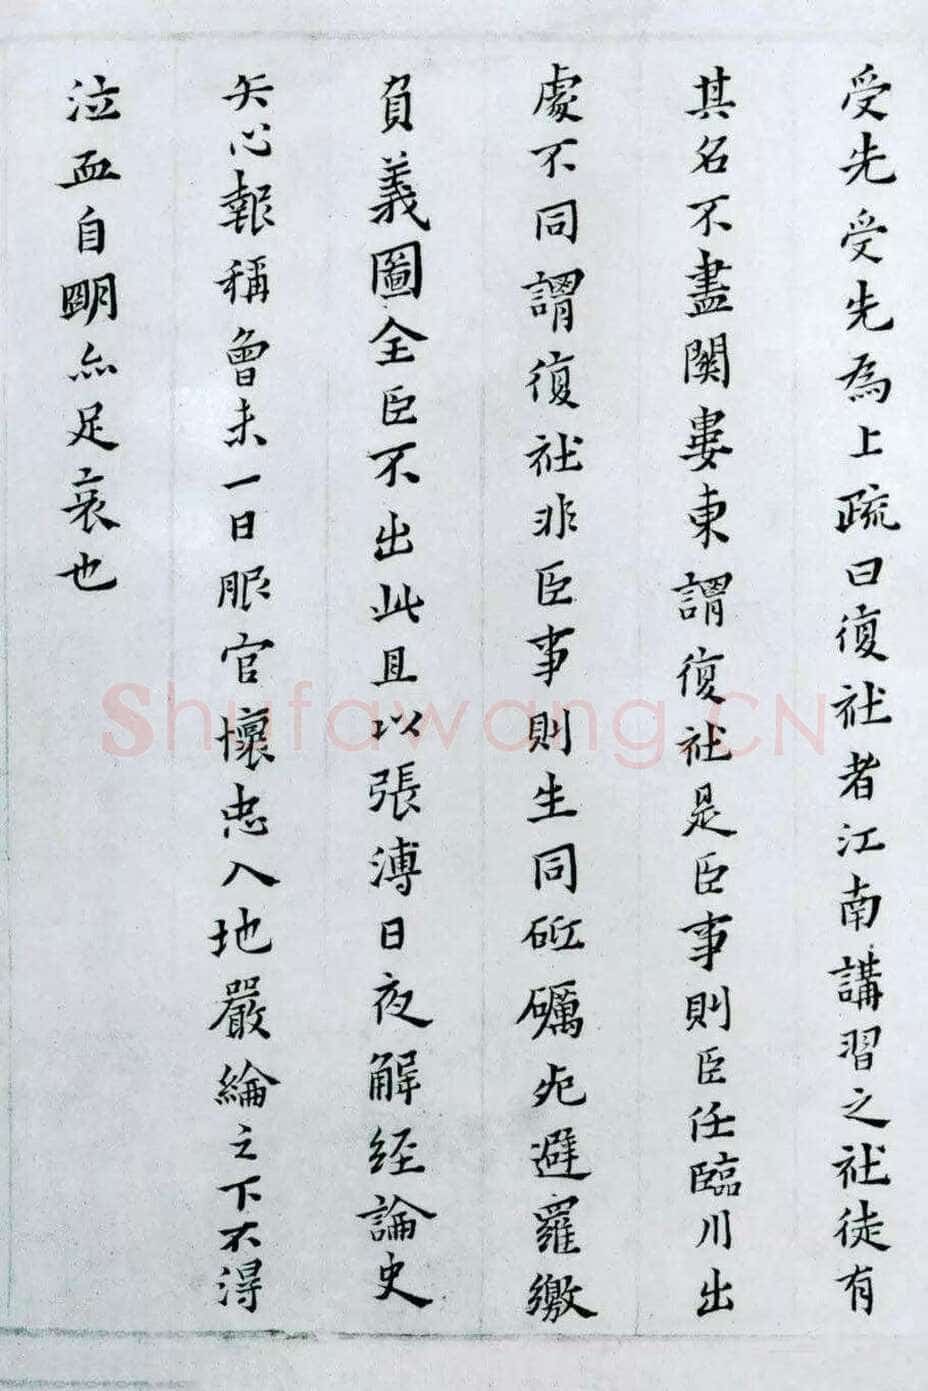 受先受先為上疏曰復社者江南講習之社徒有
其名不盡関婁東謂復社是臣事則臣任臨川出
處不同謂復社非臣事則生同砥礪死避羅繳
負義圖全臣不出此且以張溥日夜解經論史
矢心報稱曾未一日服官壞忠入地嚴綸之下不得
泣血自明亦足哀也
Shufawang.CN